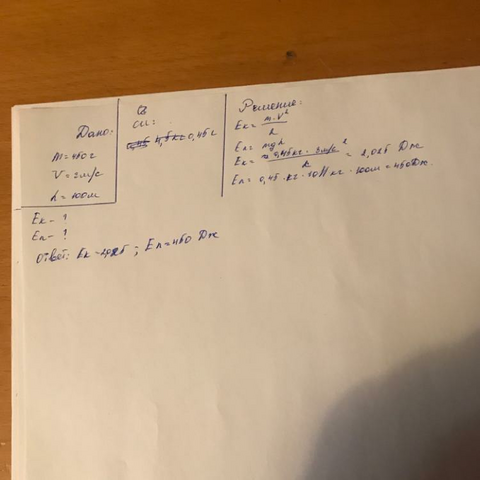 Дано:
m = 450 г
V = 3 м/с
h = 100 м
Eк - ?
Eп - ?
СИ:
0,45
Решение:
Eк = m·V²/2
Eп = mgh
Eк = 0,45 кг · 3 м/с²/2 = 2,025 Дж
Eп = 0,45 · кг · 10 Н кг · 100 м = 450 Дж.
Ответ: Eк ; Eп = 450 Дж